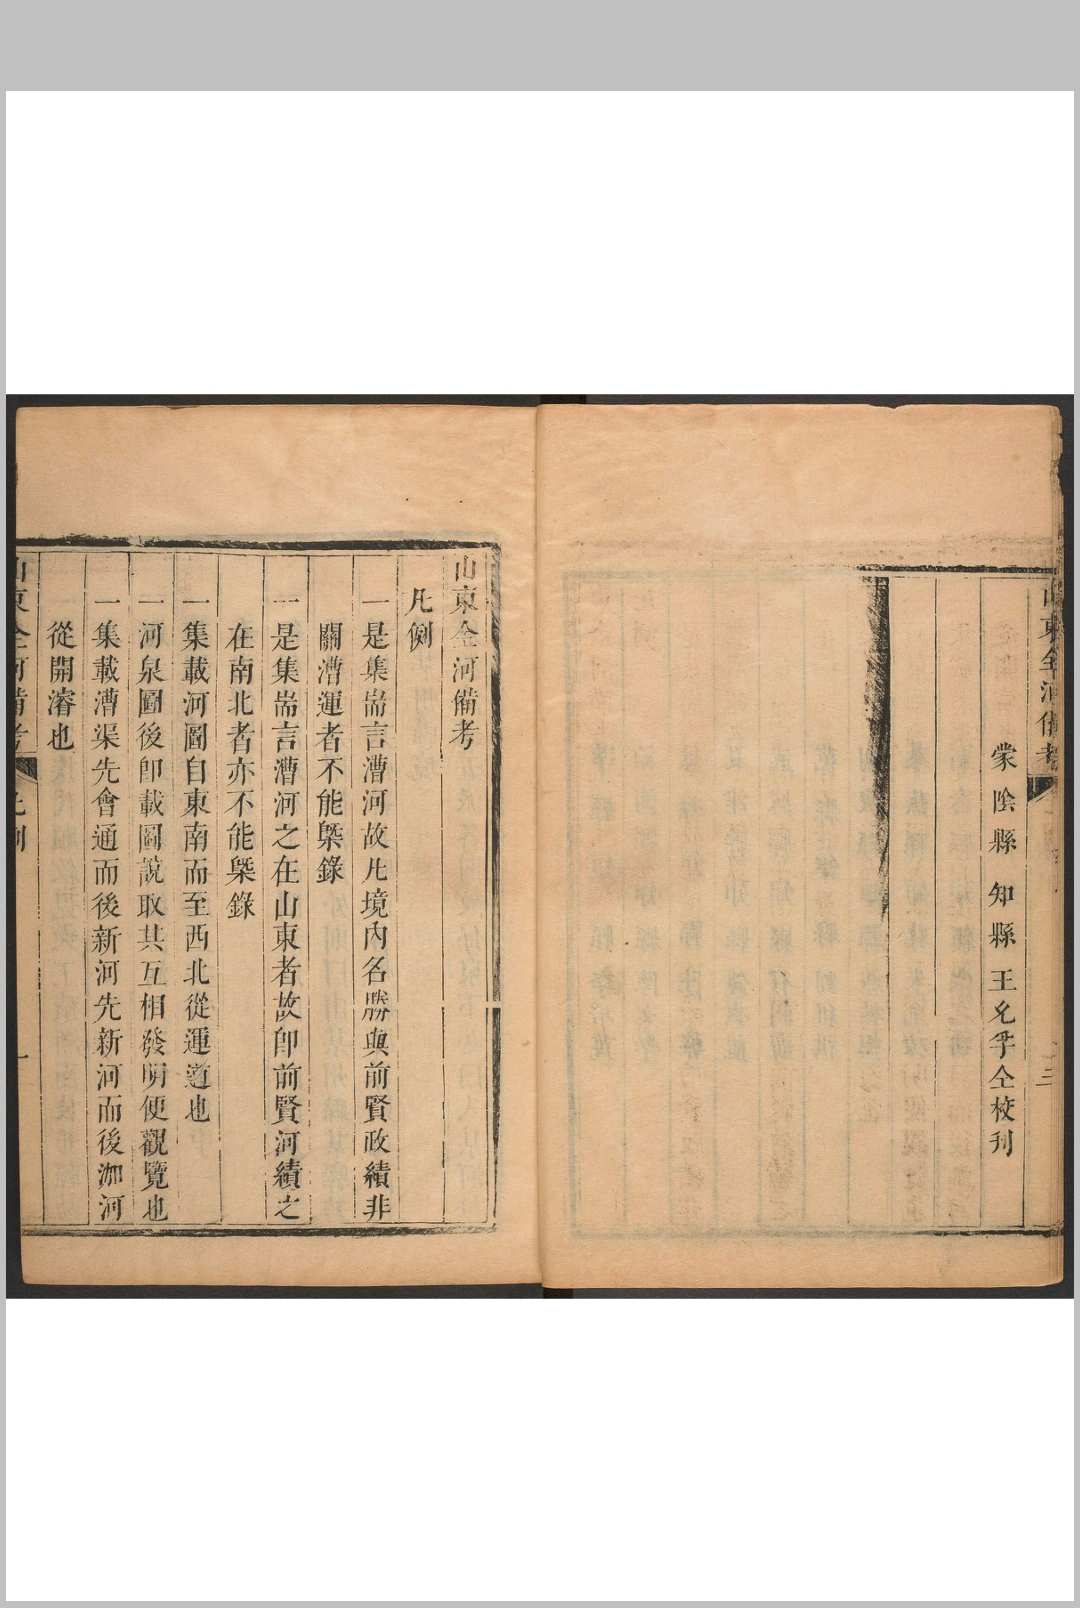 山東全河備考
三
蒙陰縣知縣王允孚仝校刊
山東全河備考
凡例
一是集耑言漕河故凡境內名勝與前賢政績非
關漕運者不能槩錄
一是集耑言漕河之在山東者故卽前賢河績之
在南北者亦不能槩錄
一集載河圖自東南而至西北從運道也
一河泉圖後卽載圖說取其互相發明便觀覽也
一集載漕渠先會通而後新河先新河而後泇河
從開濬也
山東全河備考 凡例 一